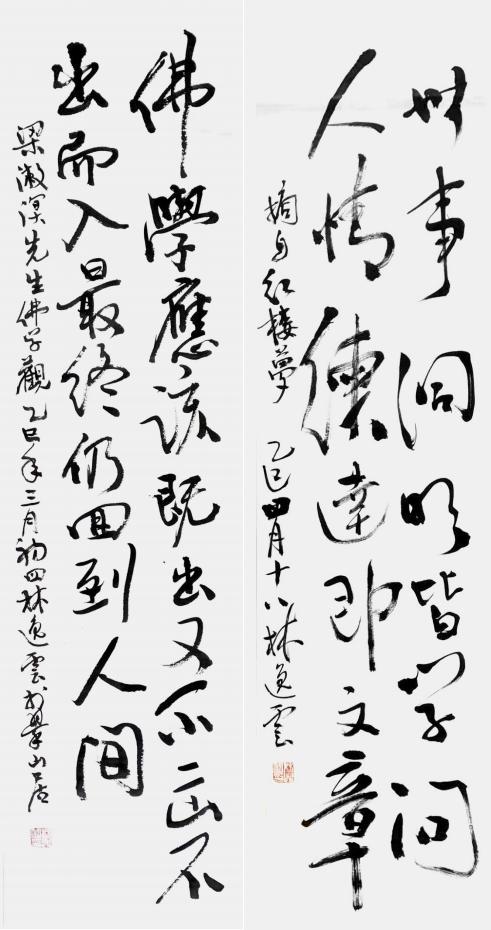 世事洞明皆学问
人情練達即文章
摘自红楼夢
乙巳四月十八林逸雲
佛學應該既出又不出不
出而入最終仍回到人間
梁漱溟先生佛学觀乙巳年三月初四林逸雲於山居